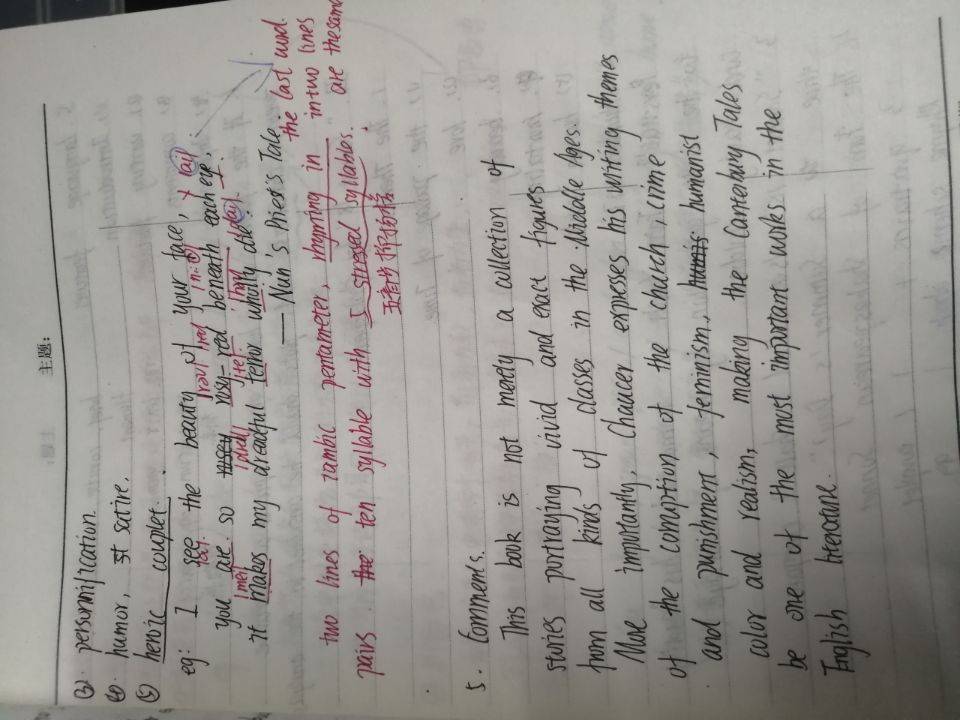 主题:
(3) personnification.
(4) humor, satire.
(5) heroic couplet.
eg: I see the beauty of your face, + [ai]
you are so rosy-red beneath each eye,
it makes my dreadful terror wholly die.
— Nun's Priest's Tale.
the last word
in two lines
are the same
two lines of iambic pentameter, rhyming in
pairs. the ten syllable with 5 stressed syllables.
5. Comments.
This book is not merely a collection of
stories portraying vivid and exact figures
from all kinds of classes in the Middle Ages.
More importantly, Chaucer expresses his writing themes
of the corruption of the church, crime
and punishment, feminism, humanist
color and realism, making the Canterbury Tales
be one of the most important works in the
English literature.